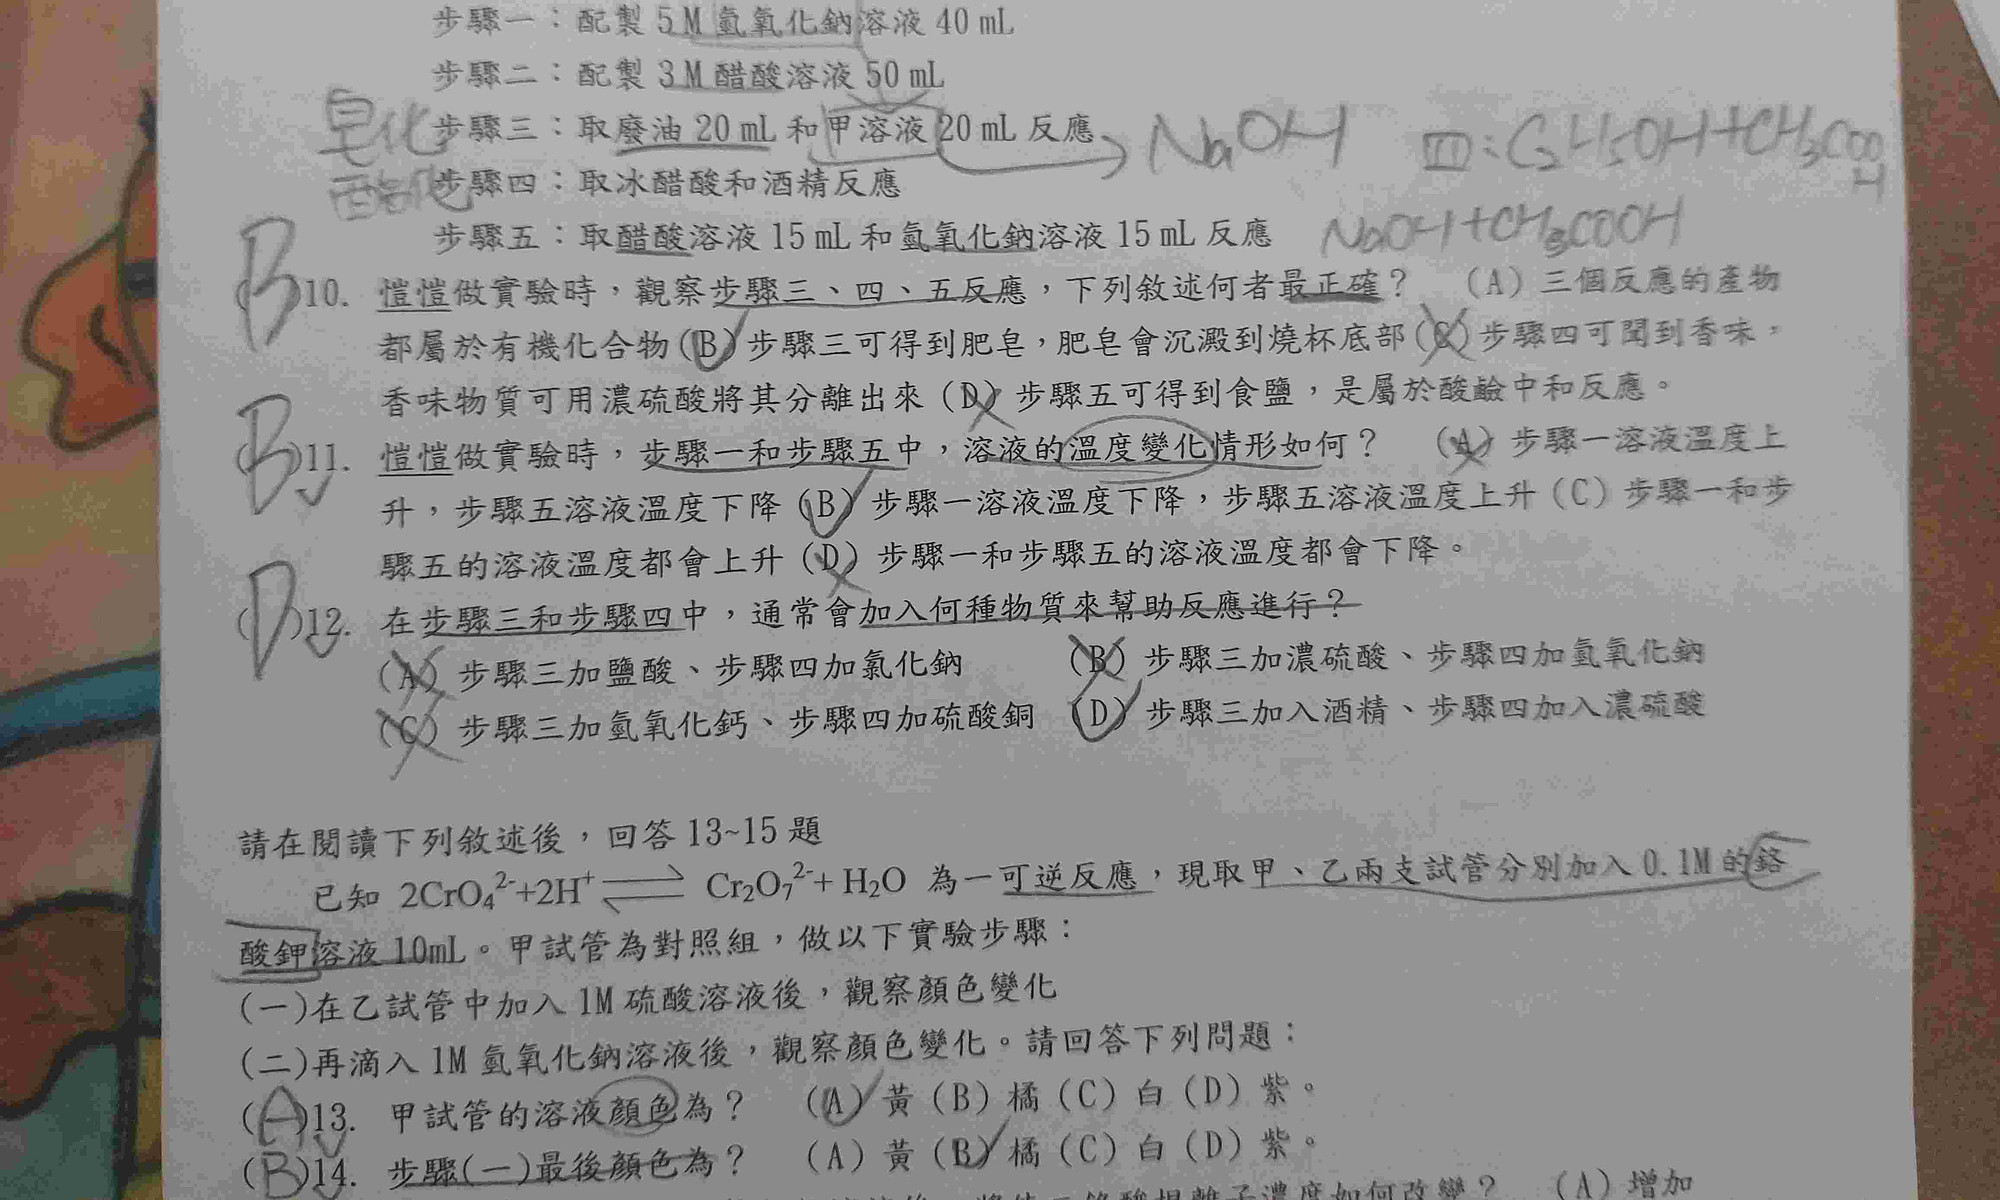 步驟一：配製 5 M 氫氧化鈉溶液 40 mL
步驟二：配製 3 M 醋酸溶液 50 mL
皂化 步驟三：取廢油 20 mL 和甲溶液 20 mL 反應 NaOH 四：C2H5OH+CH3COOH
酯化 步驟四：取冰醋酸和酒精反應
步驟五：取醋酸溶液 15 mL 和氫氧化鈉溶液 15 mL 反應 NaOH+CH3COOH
(B)10. 愷愷做實驗時，觀察步驟三、四、五反應，下列敘述何者最正確？ (A) 三個反應的產物
都屬於有機化合物 (B) 步驟三可得到肥皂，肥皂會沉澱到燒杯底部 (C) 步驟四可聞到香味，
香味物質可用濃硫酸將其分離出來 (D) 步驟五可得到食鹽，是屬於酸鹼中和反應。
(B)11. 愷愷做實驗時，步驟一和步驟五中，溶液的溫度變化情形如何？ (A) 步驟一溶液溫度上
升，步驟五溶液溫度下降 (B) 步驟一溶液溫度下降，步驟五溶液溫度上升 (C) 步驟一和步
驟五的溶液溫度都會上升 (D) 步驟一和步驟五的溶液溫度都會下降。
(D)12. 在步驟三和步驟四中，通常會加入何種物質來幫助反應進行？
(A) 步驟三加鹽酸、步驟四加氯化鈉 (B) 步驟三加濃硫酸、步驟四加氫氧化鈉
(C) 步驟三加氫氧化鈣、步驟四加硫酸銅 (D) 步驟三加入酒精、步驟四加入濃硫酸
請在閱讀下列敘述後，回答 13~15 題
已知 2CrO4^2-+2H+ ⇌ Cr2O7^2-+ H2O 為一可逆反應，現取甲、乙兩支試管分別加入 0.1M 的鉻
酸鉀溶液 10mL。甲試管為對照組，做以下實驗步驟：
(一)在乙試管中加入 1M 硫酸溶液後，觀察顏色變化
(二)再滴入 1M 氫氧化鈉溶液後，觀察顏色變化。請回答下列問題：
(A)13. 甲試管的溶液顏色為？ (A) 黃 (B) 橘 (C) 白 (D) 紫。
(B)14. 步驟(一)最後顏色為？ (A) 黃 (B) 橘 (C) 白 (D) 紫。
離子濃度如何改變？ (A) 增加